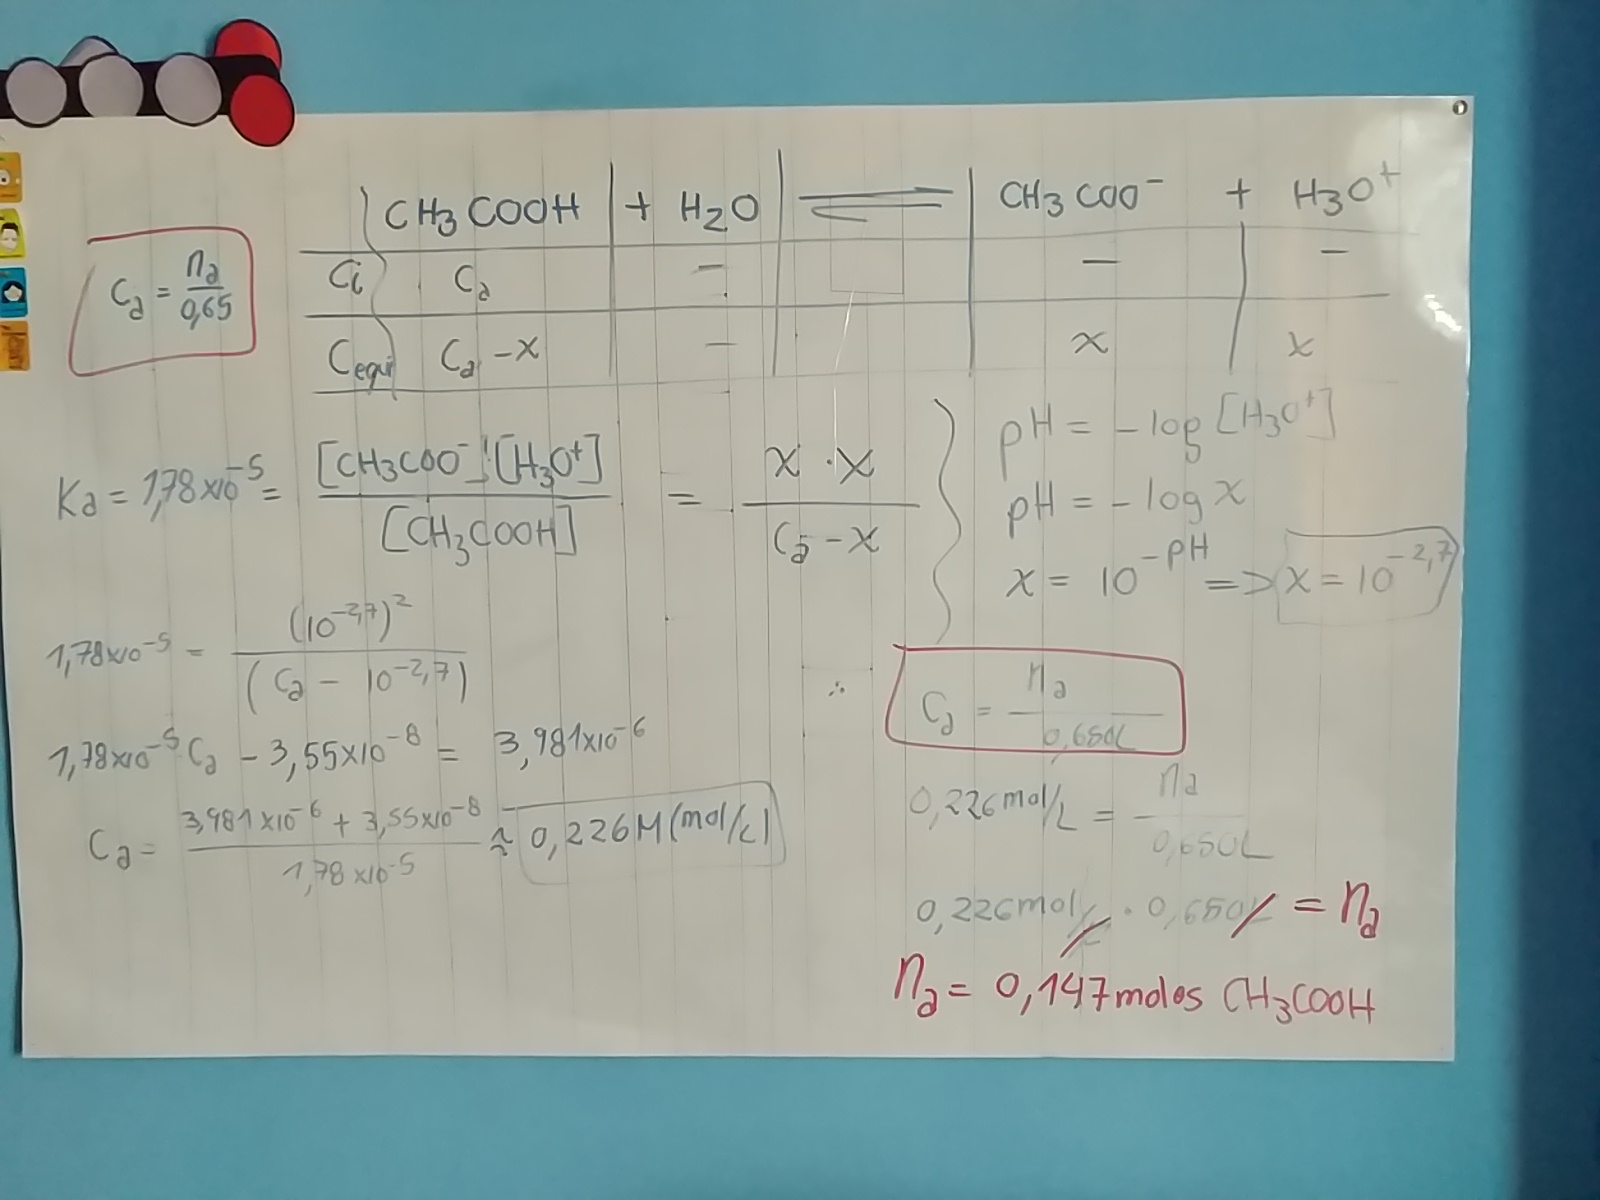 CH3COOH + H2O ⇌ CH3COO⁻ + H3O⁺
Ca = na/0,65
Ci Ca - - -
Cequi Ca - x - x x
Ka = 1,78x10⁻⁵ = [CH3COO⁻]·[H3O⁺]/[CH3COOH] = x · x/(Ca - x
pH = - log [H3O⁺]
pH = - log x
x = 10^-pH => x = 10^-2,7
1,78x10⁻⁵ = (10^-2,7)²/(Ca - 10^-2,7)
1,78x10⁻⁵ Ca - 3,55x10⁻⁸ = 3,981x10⁻⁶
Ca = 3,981x10⁻⁶ + 3,55x10⁻⁸/1,78x10⁻⁵ ≈ 0,226M (mol/L)
∴ Ca = na/0,650L
0,226mol/L = na/0,650L
0,226mol/L · 0,650L = na
na = 0,147moles CH3COOH